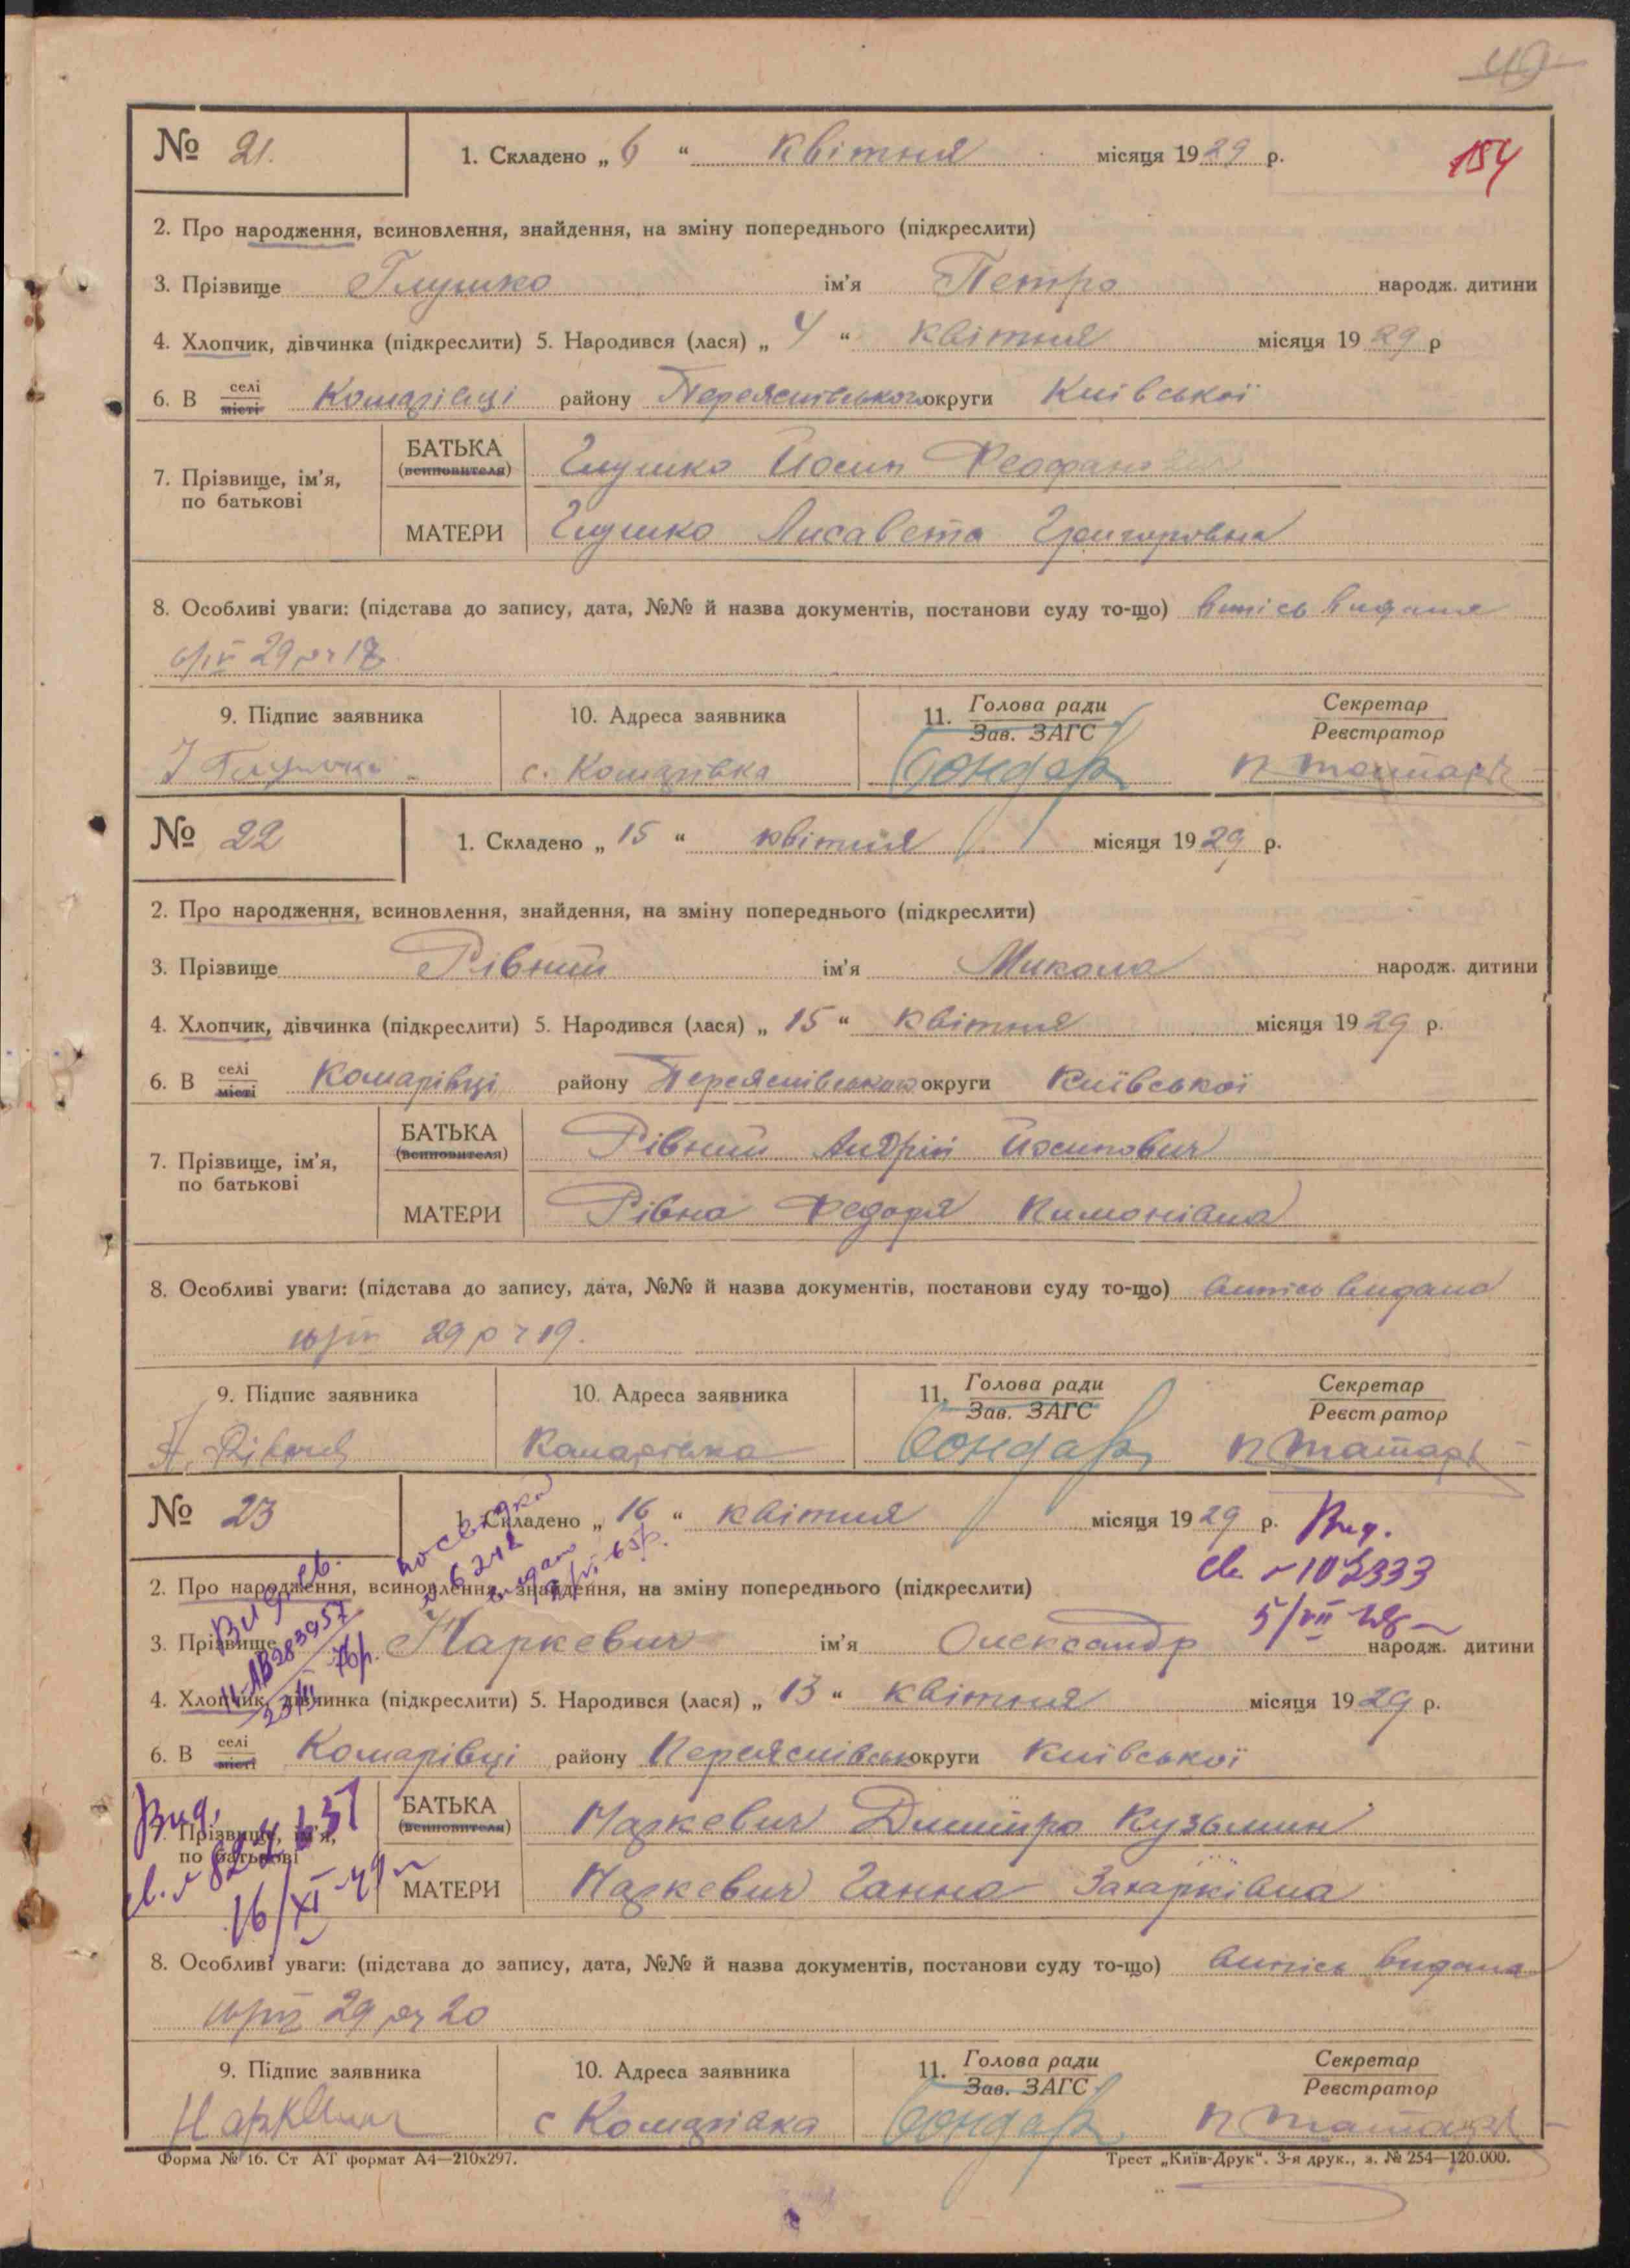 49
№ 21. 1. Складено „ 6 “ квітня місяця 1929 р. 154
2. Про народження, всиновлення, знайдення, на зміну попереднього (підкреслити)
3. Прізвище Глушко ім'я Петро народж. дитини
4. Хлопчик, дівчинка (підкреслити) 5. Народився (лася) „ 4 “ квітня місяця 1929 р
6. В селі місті Комарівці району Переяслівського округи Київської
7. Прізвище, ім'я, по батькові
БАТЬКА (всиновителя) Глушко Йосип
МАТЕРИ Глушко Лисавета Григоровна
8. Особливі уваги: (підстава до запису, дата, №№ й назва документів, постанови суду то-що) випісь видана
29
9. Підпис заявника 10. Адреса заявника 11. Голова ради Зав. ЗАГС Секретар Реєстратор
с. Комарівка Бондар
№ 22 1. Складено „ 15 “ квітня місяця 1929 р.
2. Про народження, всиновлення, знайдення, на зміну попереднього (підкреслити)
3. Прізвище Рівний ім'я Микола народж. дитини
4. Хлопчик, дівчинка (підкреслити) 5. Народився (лася) „ 15 “ квітня місяця 1929 р.
6. В селі місті Комарівці району Переяслівського округи Київської
7. Прізвище, ім'я, по батькові
БАТЬКА (всиновителя) Рівний Андрій Йосипович
МАТЕРИ Рівна Федоря
8. Особливі уваги: (підстава до запису, дата, №№ й назва документів, постанови суду то-що) випісь видана
29 р ч 19.
9. Підпис заявника 10. Адреса заявника 11. Голова ради Зав. ЗАГС Секретар Реєстратор
А. Рівний Комарівка Бондар
№ 23 1. Складено „ 16 “ квітня місяця 1929 р. Вид.
св. 5/VII
2. Про народження, всиновлення, знайдення, на зміну попереднього (підкреслити)
3. Прізвище Маркевич ім'я Олександр народж. дитини
4. Хлопчик, дівчинка (підкреслити) 5. Народився (лася) „ 13 “ квітня місяця 1929 р.
6. В селі місті Комарівці району Переяслівськ округи Київської
Вид.
7. Прізвище, ім'я, по батькові
16/XI
БАТЬКА (всиновителя) Маркевич Дмитро Кузьмин
МАТЕРИ Маркевич Ганна Захарківна
8. Особливі уваги: (підстава до запису, дата, №№ й назва документів, постанови суду то-що) випісь видана
29 20
9. Підпис заявника 10. Адреса заявника 11. Голова ради Зав. ЗАГС Секретар Реєстратор
с Комарівка Бондар
Форма № 16. Ст АТ формат А4—210x297. Трест „Київ-Друк“. 3-я друк., з. № 254—120.000.